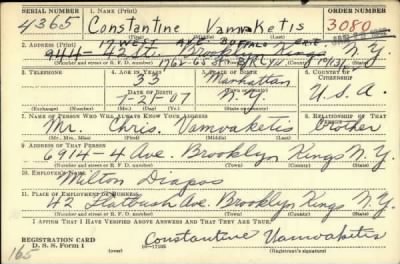 SERIAL NUMBER 1. NAME (Print) ORDER NUMBER
4365 Constantine Vamvaketis 3080
17 WEST AVE BUFFALO ERIE
2. ADDRESS (Print)
9114-42 St. Brooklyn Kings N.Y.
1768-65 St. BKLYN
(Number and street or R. F. D. number) (Town) (County) (State)
3. TELEPHONE 4. AGE IN YEARS 5. PLACE OF BIRTH 6. COUNTRY OF CITIZENSHIP
33 Manhattan
DATE OF BIRTH (Town or county)
7-21-07 N.Y. U.S.A.
(Exchange) (Number) (Mo.) (Day) (Yr.) (State or country)
7. NAME OF PERSON WHO WILL ALWAYS KNOW YOUR ADDRESS 8. RELATIONSHIP OF THAT PERSON
Mr. Chris. Vamvaketis brother
(Mr., Mrs., Miss) (First) (Middle) (Last)
9. ADDRESS OF THAT PERSON
6914-4 Ave. Brooklyn Kings N.Y.
(Number and street or R. F. D. number) (Town) (County) (State)
10. EMPLOYER'S NAME
Milton Diapas
11. PLACE OF EMPLOYMENT OR BUSINESS
42 Flatbush Ave. Brooklyn Kings N.Y.
(Number and street or R. F. D. number) (Town) (County) (State)
I AFFIRM THAT I HAVE VERIFIED ABOVE ANSWERS AND THAT THEY ARE TRUE.
REGISTRATION CARD
D. S. S. Form 1 (over) Constantine Vamvaketis
165 (Registrant's signature)